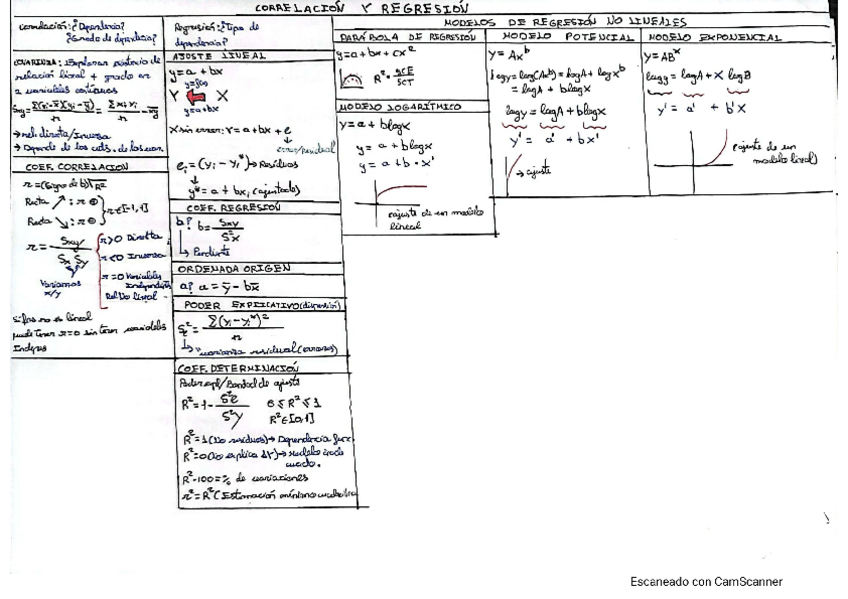 CORRELACIÓN Y REGRESIÓN
Correlación: ¿Dependencia?
¿Grado de dependencia?
COVARIANZA: Explorar existencia de
relación lineal + grado en
2 variables continuas
Sxy = Σ(xi-x̄)(yi-ȳ)/n = Σxiyi/n - x̄ȳ
→ rel. directa/Inversa
→ Depende de las uds. de las var.
COEF. CORRELACIÓN
r = (Signo de b)√R²
Recta ↗: r ⊕
Recta ↘: r ⊖
r∈[-1,1]
r = Sxy/(Sx Sy)
r>0 Directa
r<0 Inversa
r=0 Variables
Independientes
Rel No lineal
Variamos
x/y
Si fas no es lineal
puede tener r=0 sin tener variables
Indeps
Regresión: ¿Tipo de
dependencia?
AJUSTE LINEAL
y = a + bx
Y X
y=a+bx
X sin error: Y = a + bx + e
error/residual
ei = (yi - yi*) → Residuos
y* = a + bxi (ajustado)
COEF. REGRESIÓN
b? b = Sxy/S²x
Pendiente
ORDENADA ORIGEN
a? a = ȳ - bx̄
PODER EXPLICATIVO (dispersión)
S²e = Σ(yi-yi*)²/n
varianza residual (errores)
COEF. DETERMINACIÓN
Poder expl/Bondad de ajuste
R² = 1 - S²e/S²y 0 ≤ R² ≤ 1
R²∈[0,1]
R²=1 (No residuos) → Dependencia func
R²=0 (No explica ΔY) → modelo inade
cuado.
R²·100 = % de variaciones
r² = R² (Estimación mínimo cuadrática
MODELOS DE REGRESIÓN NO LINEALES
PARÁBOLA DE REGRESIÓN
y = a + bx + cx²
R² = SCE/SCT
MODELO LOGARÍTMICO
y = a + blogx
y = a + blogx
y = a + b·x'
ajuste de un modelo
lineal
MODELO POTENCIAL
y = Ax^b
logy = log(Ax^b) = logA + logx^b
= logA + blogx
logy = logA + blogx
y' = a' + bx'
→ ajuste
MODELO EXPONENCIAL
y = AB^x
logy = logA + X logB
y' = a' + b'X
ajuste de un
modelo lineal)
Escaneado con CamScanner